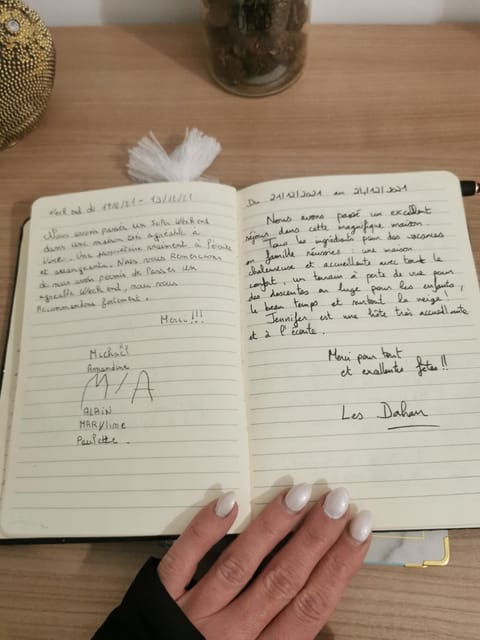 Week end du 11/12/21 - 13/12/21
Nous avons passés un super Weekend
dans une maison très agréable à
vivre. Une propriétaire vraiment à l'écoute
et arrangeante. Nous vous Remercions
de nous avoir permis de Passer un
agréable Week end, nous vous
Recommandons forcément.
Merci !!!
Michaël
Amandine
M/A
ALAIN
MARYline
Paulette.
Du 21/12/2021 au 24/12/2021
Nous avons passé un excellent
séjour dans cette magnifique maison.
Tous les ingrédients pour des vacances
en famille réussies : une maison
chaleureuse et accueillante avec tout le
confort, un terrain à perte de vue pour
des descentes en luge pour les enfants,
le beau temps et surtout la neige !
Jennifer est une hôte très accueillante
et à l'écoute.
Merci pour tout
et excellentes fêtes !!
Les Dahan